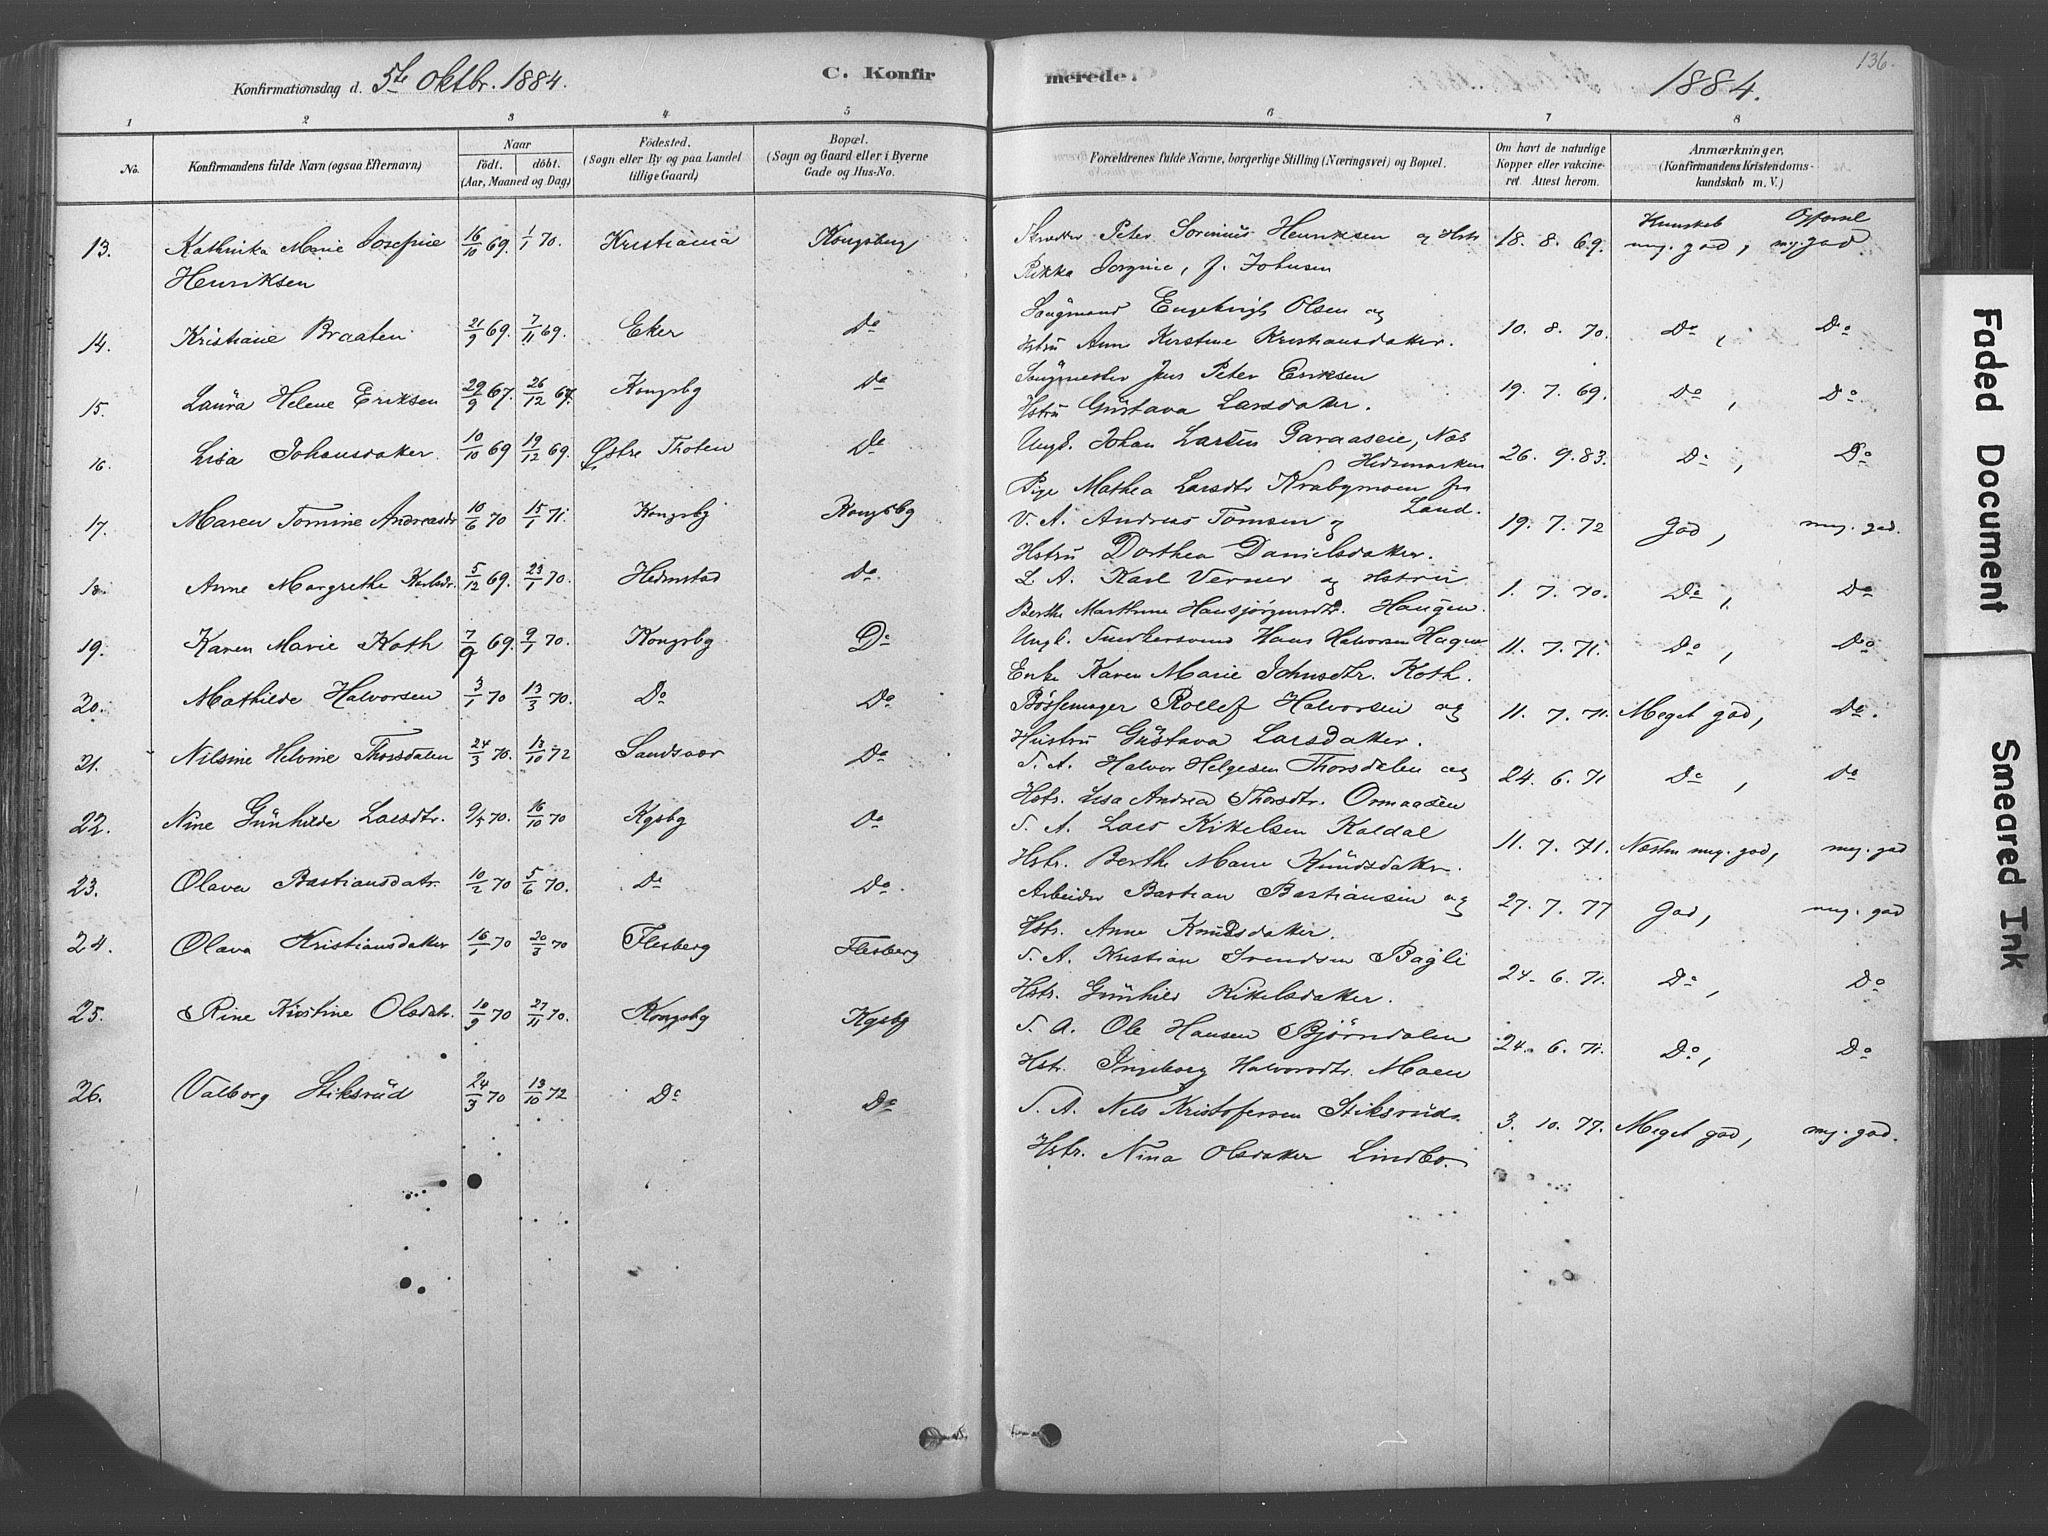 136.
Konfirmationsdag d. 5te Oktbr. 1884.
C. Konfir
merede.
1884.
1 2 3 4 5 6 7 8
No.
Konfirmandens fulde Navn (ogsaa Efternavn)
Naar
födt. döbt.
(Aar, Maaned og Dag)
Födested.
(Sogn eller By og paa Landet
tillige Gaard.)
Bopæl.
(Sogn og Gaard eller i Byerne
Gade og Hus-No.
Forældrenes fulde Navne, borgerlige Stilling (Næringsvei) og Bopæl.
Om havt de naturlige
Kopper eller vakcine-
ret. Attest herom.
Anmærkninger.
(Konfirmandens Kristendoms-
kundskab m. V.)
Kunskab Opførsel
13. Kathinka Marie Josefine 16/10 69. 1/1 70. Kristiania Kongsberg Peter Sorinius Henriksen og Hstr 18. 8. 69. meg. god, my. god
Henriksen
Rikka Jorgine, f. Johnsen
14. Kristiane Braaten 21/9 69. 7/11 69. Eker Do Saugmand Engebrigt Olsen og 10. 8. 70. Do, Do
Hstru Anne Kerstine Kristiansdatter.
15. Laura Helene Eriksen 29/9 67. 26/12 67. Kongsbg Do Saugmester Jens Peter Eriksen 19. 7. 69. Do, Do
Hstru Gustava Larsdatter.
16. Lisa Johansdatter. 10/10 69 19/12 69. Østre Thoten Do Ungk. Johan Larsen Garaaseie, Næs 26. 9. 83. Do, Do
Hedemarken
Pige Mathea Larsdtr Krabymoen fra
Land.
17. Maren Tomine Andreasdr 10/6 70 15/1 71. Kongsbg Kongsbg V. A. Andreas Tomsen og 19. 7. 72 God, meg. god.
Hstru Dorthea Danielsdatter.
18. Anne Margrethe Karlsdr. 5/12 69. 23/1 70. Hedenstad Do. S. A. Karl Verner og Hstru 1. 7. 70. Do, Do
Berthe Marthine Hansjørgensdtr. Haugen.
19. Karen Marie Koth 7/9 69. 9/1 70. Kongsbg Do Ungk. Hans Halvorsen Hagen 11. 7. 71. Do, Do
Enke Karen Marie Johnsdtr. Koth.
20. Mathilde Halvorsen 3/1 70 13/3 70. Do Do Bøssemager Rollef Halvorsen og 11. 7. 71. Meget god, Do.
Hustru Gustava Larsdatter.
21. Nilsine Helvine Thorsdalen 24/3 70. 13/10 72 Sandsvær Do S. A. Halvor Helgesen Thorsdalen og 24. 6. 71 Do, Do
Hstr. Lisa Andrea Thorsdtr. Ormaasen
22. Nine Gunhilde Larsdtr. 9/5 70. 16/10 70 Kgsbg Do S. A. Lars Kittelsen Kaldal 11. 7. 71. Næsten meg. god, meg. god
Hstr. Berthe Marie Knudsdatter.
23. Olava Bastiansdatr. 10/2 70 5/6 70. Do Do. Arbeider Bastian Bastiansen og 27. 7. 77 God, meg. god
Hstr. Anne Knudsdatter.
24. Olava Kristiansdatter 16/1 70 20/3 70 Flesberg Flesberg S. A. Kristian Svendsen Bagli 24. 6. 71. Do, Do
Hstr. Gunhild Kittelsdatter.
25. Rine Kirstine Olsdatr. 10/9 70 27/11 70. Kongsbg Kgsbg S. A. Ole Hansen Bjørndalen 24. 6. 71. Do, Do
Hstr. Ingeborg Halvorsdtr. Moen
26. Valborg Stiksrud 24/3 70 13/10 72 Do Do S. A. Nils Kristofersen Stiksrud. 3. 10. 77. Meget god, my. god.
Hstr. Nina Olsdatter Lindbo.
Faded Document
Smeared Ink